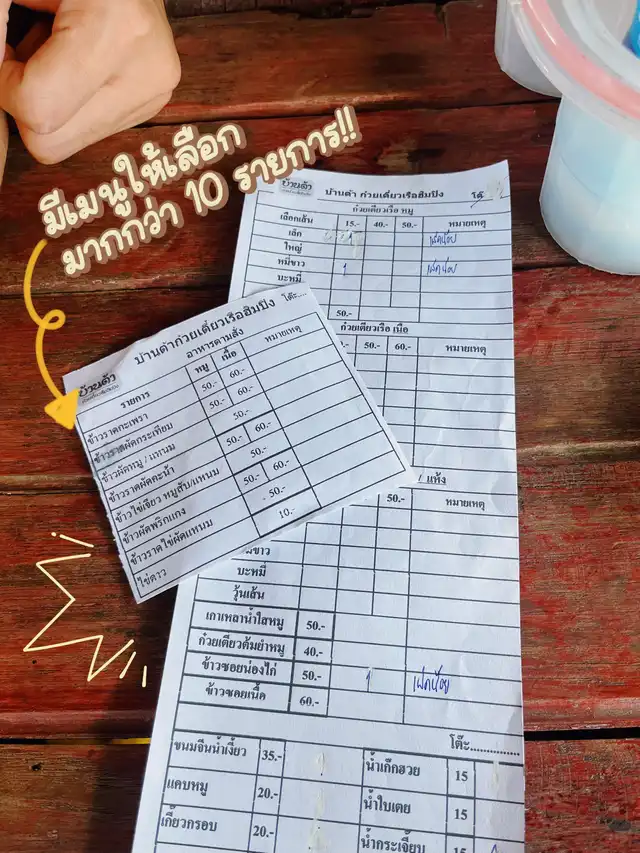 มีเมนูให้เลือก
มากกว่า 10 รายการ!!
บ้านต้า ก๋วยเตี๋ยวเรือฮิมปิง
ก๋วยเตี๋ยวเรือ หมู
เลือกเส้น 15.- 40.- 50.- หมายเหตุ
เล็ก เผ็ดน้อย
ใหญ่
หมี่ขาว 1 เผ็ดน้อย
บะหมี่
50.-
ก๋วยเตี๋ยวเรือ เนื้อ
50.- 60.- หมายเหตุ
/ แห้ง
50.- หมายเหตุ
บะหมี่
วุ้นเส้น
เกาเหลาน้ำใสหมู 50.-
ก๋วยเตี๋ยวต้มยำหมู 40.-
ข้าวซอยน่องไก่ 50.- 1 เผ็ดน้อย
ข้าวซอยเนื้อ 60.-
โต๊ะ..............
ขนมจีนน้ำเงี้ยว 35.- น้ำเก๊กฮวย 15
แคบหมู 20.- น้ำใบเตย 15
เกี๊ยวกรอบ 20.- น้ำกระเจี๊ยบ 15
บ้านต้าก๋วยเตี๋ยวเรือฮิมปิง โต๊ะ.....
อาหารตามสั่ง
รายการ หมู เนื้อ หมายเหตุ
ข้าวราดกะเพรา 50.- 60.-
ข้าวราดผัดกระเทียม 50.- 60.-
ข้าวผัดหมู / แหนม 50.-
ข้าวราดผัดคะน้า 50.- 60.-
ข้าวไข่เจียว หมูสับ/แหนม 50.-
ข้าวผัดพริกแกง 50.- 60.-
ข้าวราดไข่ผัดแหนม - 50.-
ไข่ดาว 10.-